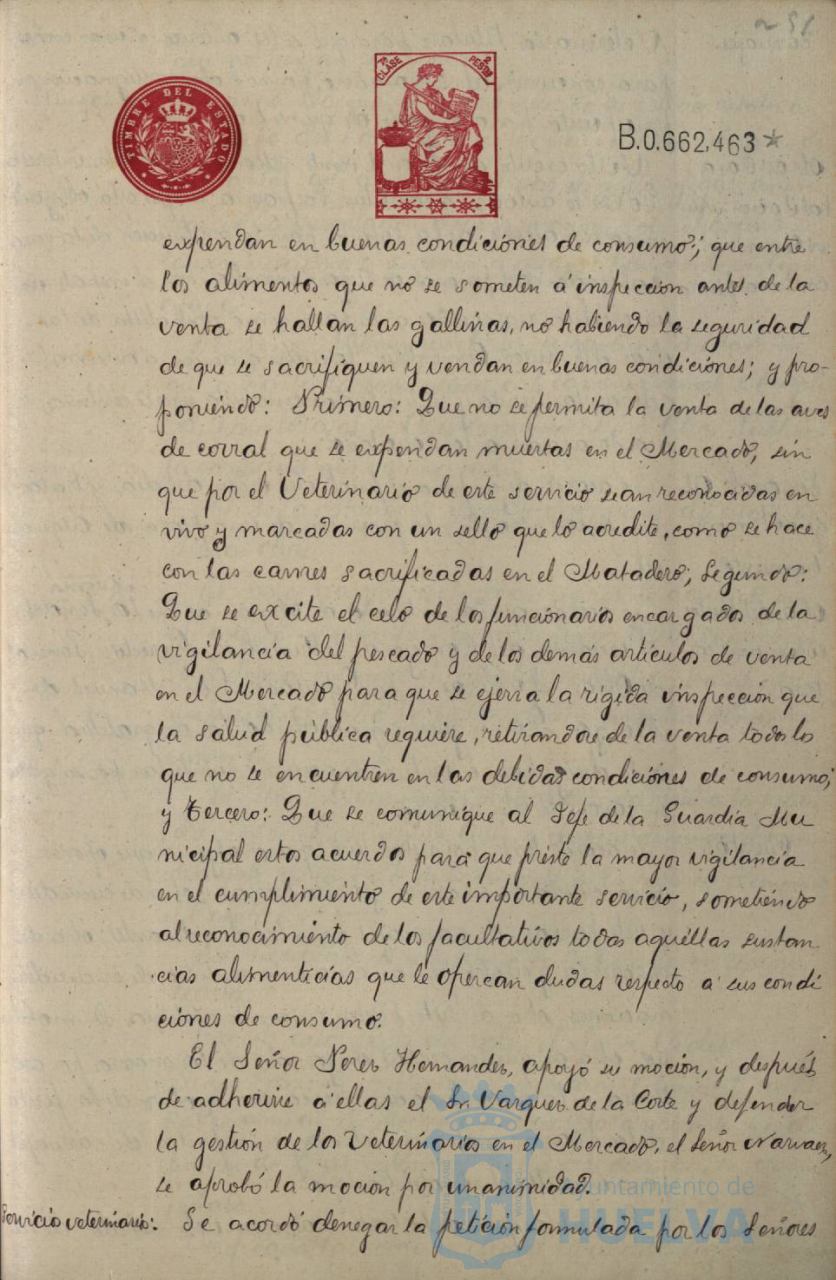 251
TIMBRE DEL ESTADO
7ª CLASE
2 PESETAS
B.0.662,463*
expendan en buenas condiciónes de consumo; que entre
los alimentos que no se someten á inspección antes de la
venta se hallan las gallinas, no habiendo la seguridad
de que se sacrifiquen y vendan en buenas condiciónes; y pro-
poniendo: Primero: Que no se permita la venta de las aves
de corral que se expendan muertas en el Mercado, sin
que por el Veterinario de este servicio sean reconocidas en
vivo y marcadas con un sello que lo acredite, como se hace
con las carnes sacrificadas en el Matadero; Segundo:
Que se excite el celo de los funcionarios encargados de la
vigilancia del pescado y de los demás artículos de venta
en el Mercado para que se ejerza la rígida inspección que
la salud pública requiere, retirandose de la venta todo lo
que no se encuentren en las debidas condiciónes de consumo;
y tercero: Que se comunique al Jefe de la Guardia Mu
nicipal estos acuerdos para que preste la mayor vigilancia
en el cumplimiento de este importante servicio, sometiendo
al reconocimiento de los facultativos todas aquellas sustan
cias alimenticias que le ofrezcan dudas respecto a sus condi
ciónes de consumo.
El Señor Perez Hernandez, apoyó su moción, y después
de adherirse á ellas el Sr. Vazquez de la Corte y defender
la gestión de los Veterinarios en el Mercado, el Señor Narvaez,
se aprobó la moción por unanimidad.
Servicio veterinario: Se acordó denegar la petición formulada por los Señores
Ayuntamiento de
HUELVA